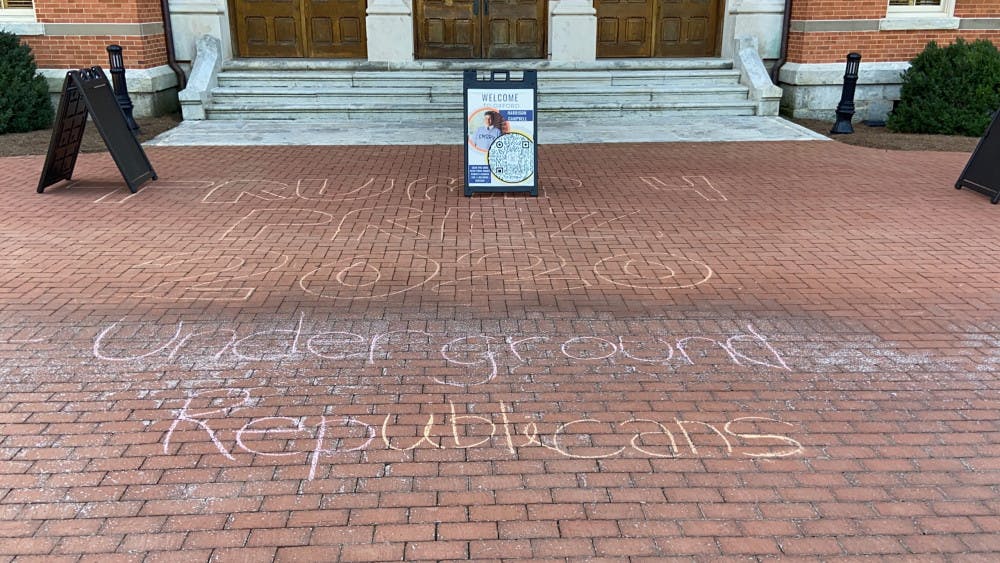 WELCOME
TO OXFORD
HARRISON
CAMPBELL
EMORY
TRUMP 4
PREZ.
2020
Underground
Republicans